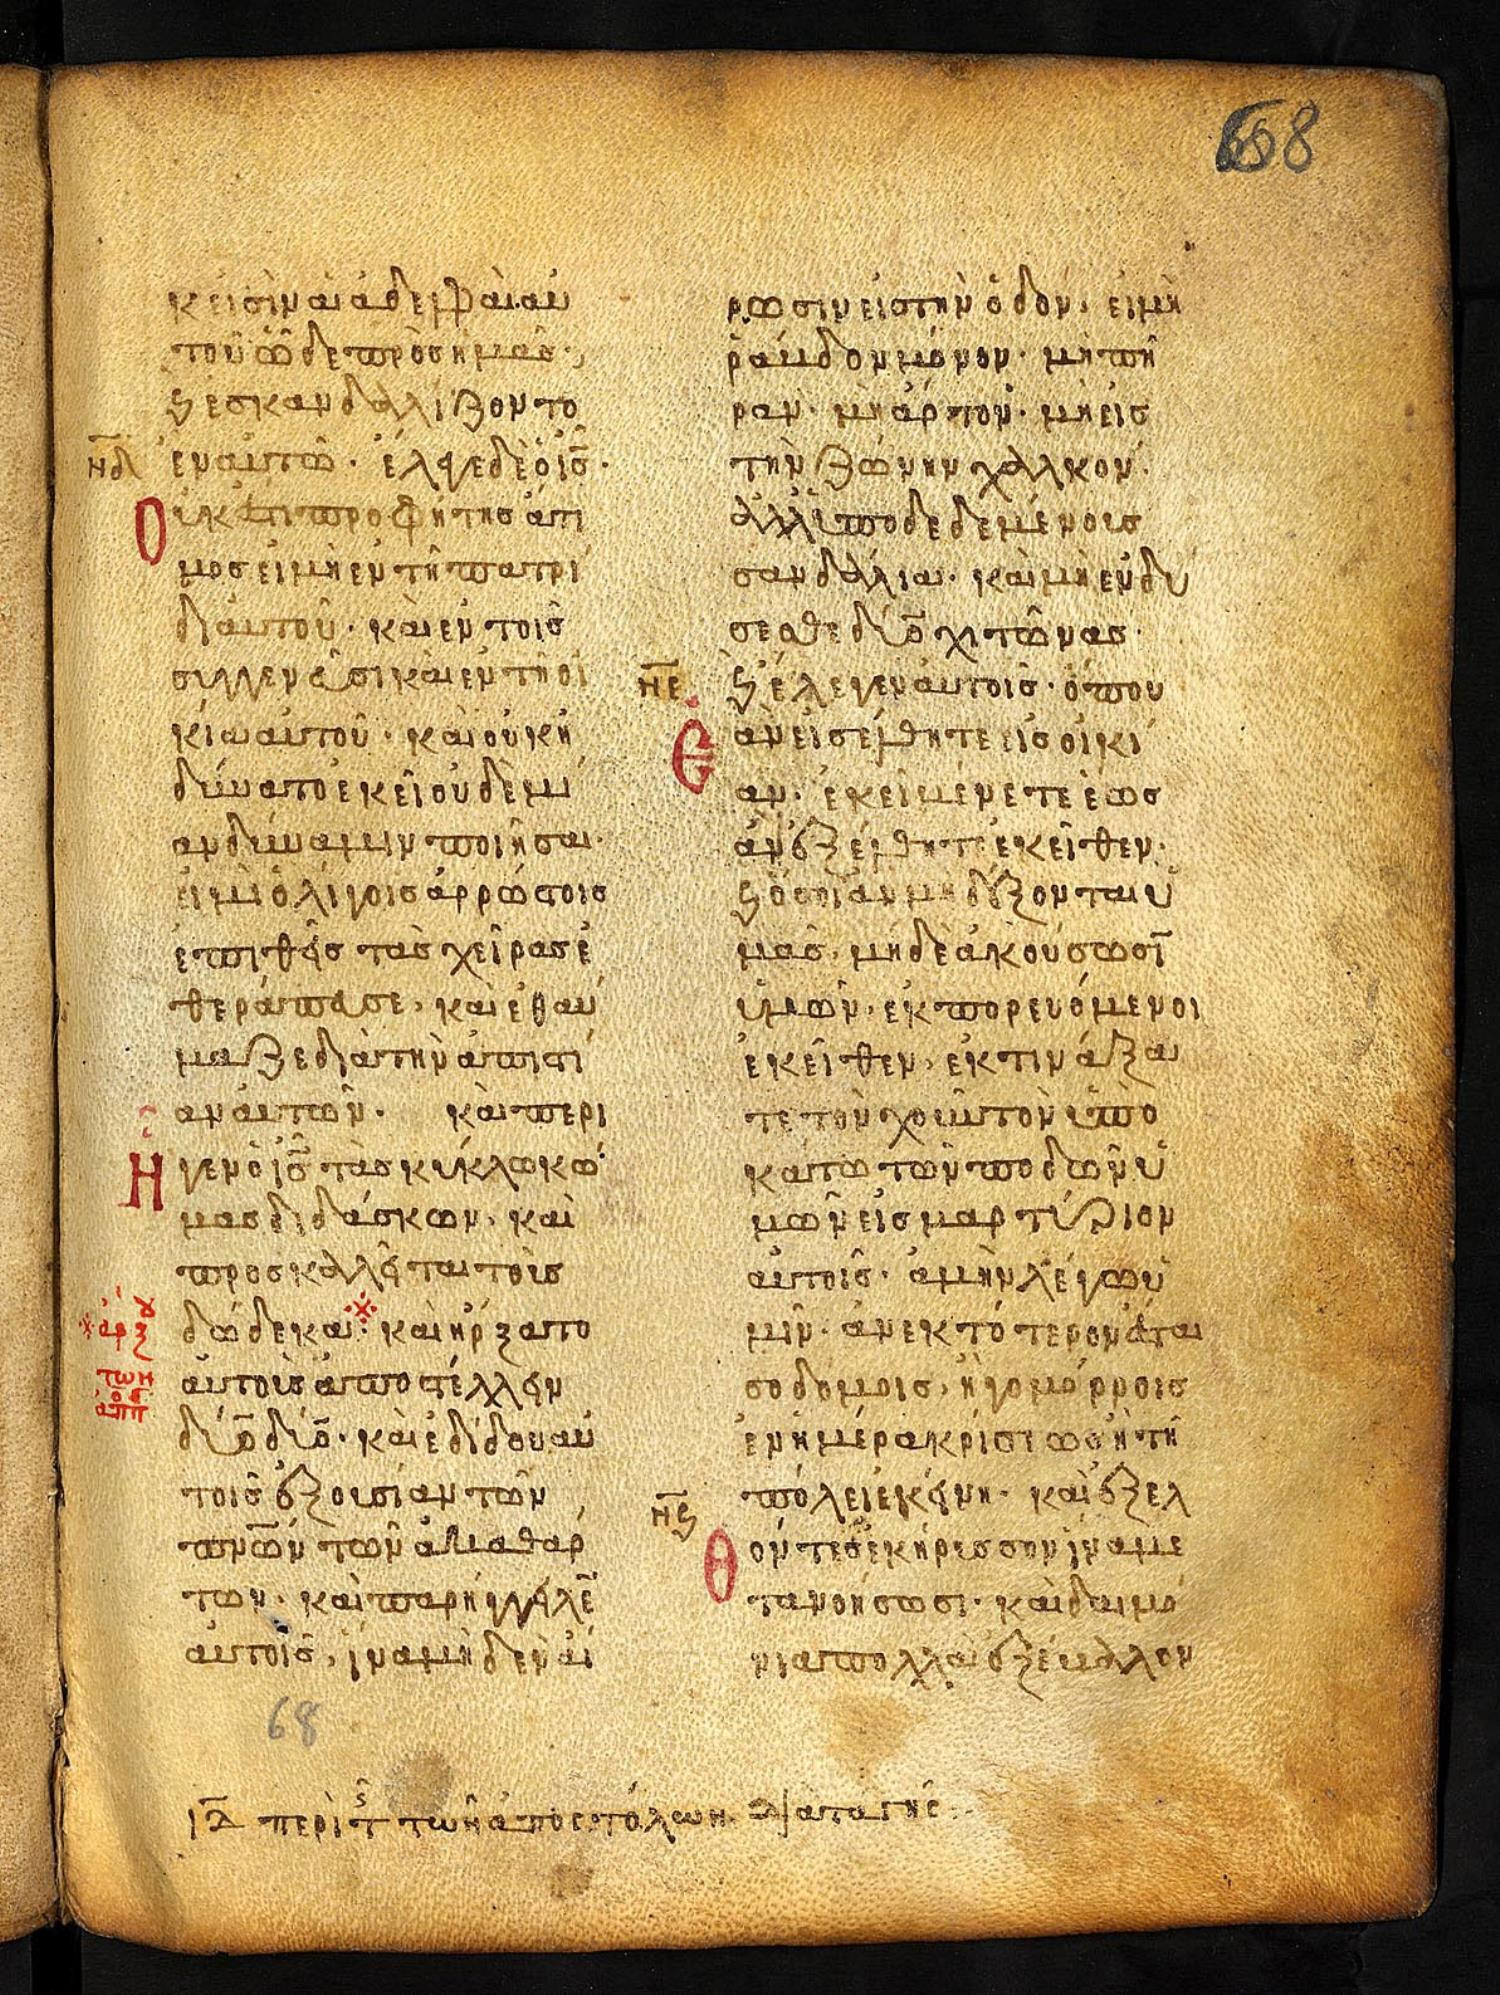 668
κεισὶν αἱ ἀδελφαὶ αὐ
τοῦ ὧδε πρὸς ἡμᾶς·
ϗ ἐσκανδαλίζοντο
ν̅δ̅ ἐν αὐτῶ· ἔλεγε δὲ ὁ ι̅ς̅·
Οὐκ ἔστι προφήτης ἄτι
μος εἰ μὴ ἐν τῆ πατρί
δι αὐτοῦ· καὶ ἐν τοῖς
συγγενέσι καὶ ἐν τῆ οἰ
κία αὐτοῦ· καὶ οὐκ ἠ
δύνατο ἐκεῖ οὐδεμί
αν δύναμιν ποιῆσαι·
εἰ μὴ ὀλίγοις ἀρρώστοις
ἐπιθεὶς τὰς χεῖρας ἐ
θεράπευσε· καὶ ἐθαύ
μαζε διὰ τὴν ἀπιστί
αν αὐτῶν· καὶ περι
Ηγεν ὁ ι̅ς̅ τὰς κύκλω κώ
μας διδάσκων· καὶ
προσκαλεῖται τοὺς
ἀρχ δώδεκα· καὶ ἤρξατο
τῶν αὐτοὺς ἀποστέλλειν
ἀπ δύο δύο· καὶ ἐδίδου αὐ
τοῖς ἐξουσίαν τῶν
π̅ν̅ω̅ν̅ τῶν ἀκαθάρ
των· καὶ παρήγγειλε̅
αὐτοῖς, ἵνα μηδὲν αἴ
68
ρωσιν εἰς τὴν ὁδόν· εἰ μὴ
ῥάβδον μόνον· μὴ πή
ραν· μὴ ἄρτον· μὴ εἰς
τὴν ζώνην χαλκόν·
ἀλλ' ὑποδεδεμένους
σανδάλια· καὶ μὴ ἐνδύ
σεσθε δύο χιτῶνας·
ν̅ε̅ ϗ ἔλεγεν αὐτοῖς· ὅπου
Ε ἂν εἰσέλθητε εἰς οἰκί
αν· ἐκεῖ μένετε ἕως
ἂν ἐξέλθητε ἐκεῖθεν·
ϗ ὅσοι ἂν μὴ δέξονται ὑ
μᾶς· μηδὲ ἀκούσωσι̅
ὑμῶν· ἐκπορευόμενοι
ἐκεῖθεν, ἐκτινάξα
τε τὸν χοῦν τὸν ὑπο
κάτω τῶν ποδῶν ὑ
μῶν εἰς μαρτύριον
αὐτοῖς· ἀμὴν λέγω ὑ
μῖν· ἀνεκτότερον ἔσται
σοδόμοις, ἢ γομόρροις
ἐν ἡμέρα κρίσεως ἢ τῆ
πόλει ἐκείνη· καὶ ἐξελ
ν̅ϛ̅ Θόντες ἐκήρυσσον ἵνα με
τανοήσωσι· καὶ δαιμό
νια πολλὰ ἐξέβαλλον
ι̅δ̅ περὶ τ τῶν ἀποστόλων διαταγῆς